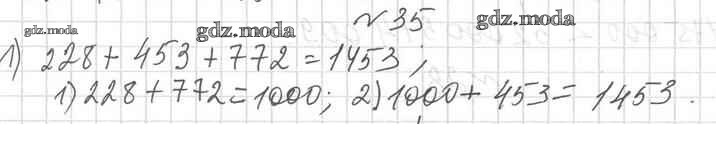 № 35
gdz.moda gdz.moda gdz.moda
1) 228 + 453 + 772 = 1453;
1) 228 + 772 = 1000; 2) 1000 + 453 = 1453.